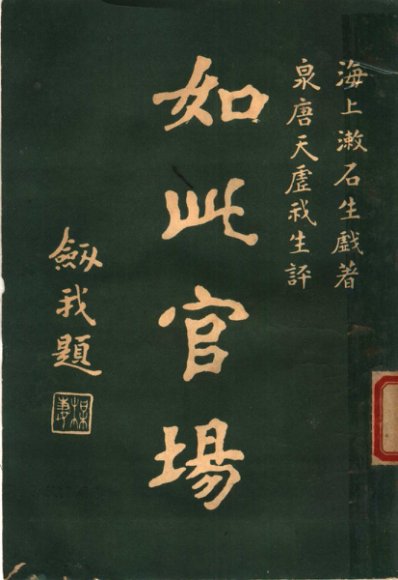 海上漱石生戲著
泉唐天虛我生評
如此官場
劍我題